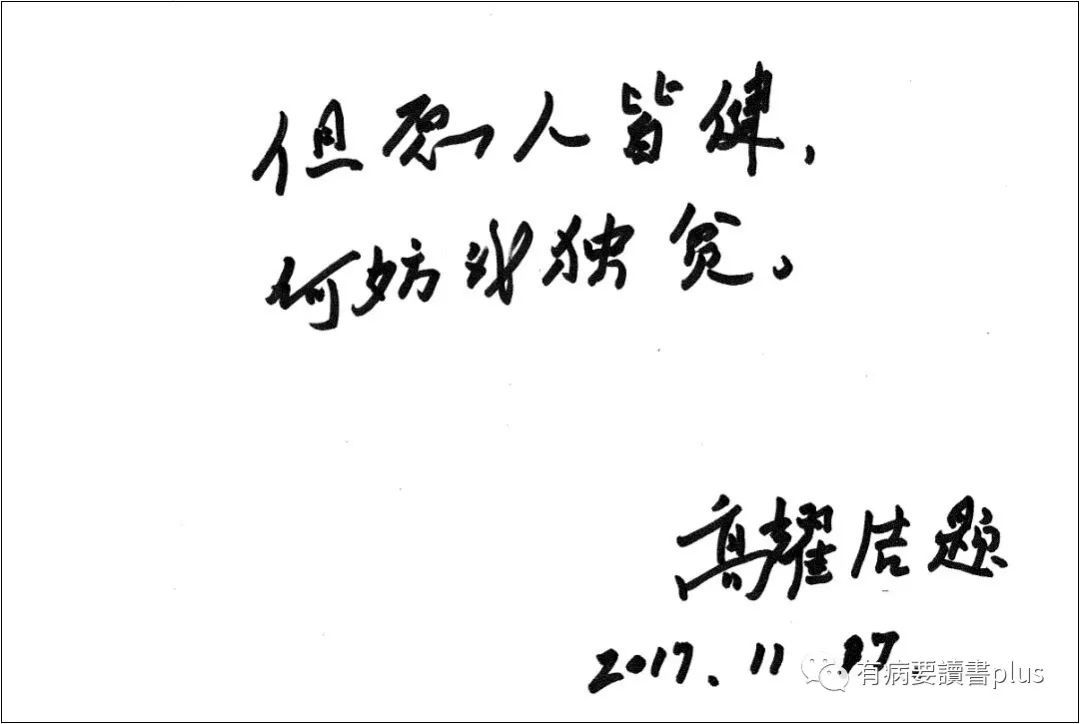 但愿人皆健，
何妨我独贫。
高耀洁题
2017.11.17.
有病要讀書plus